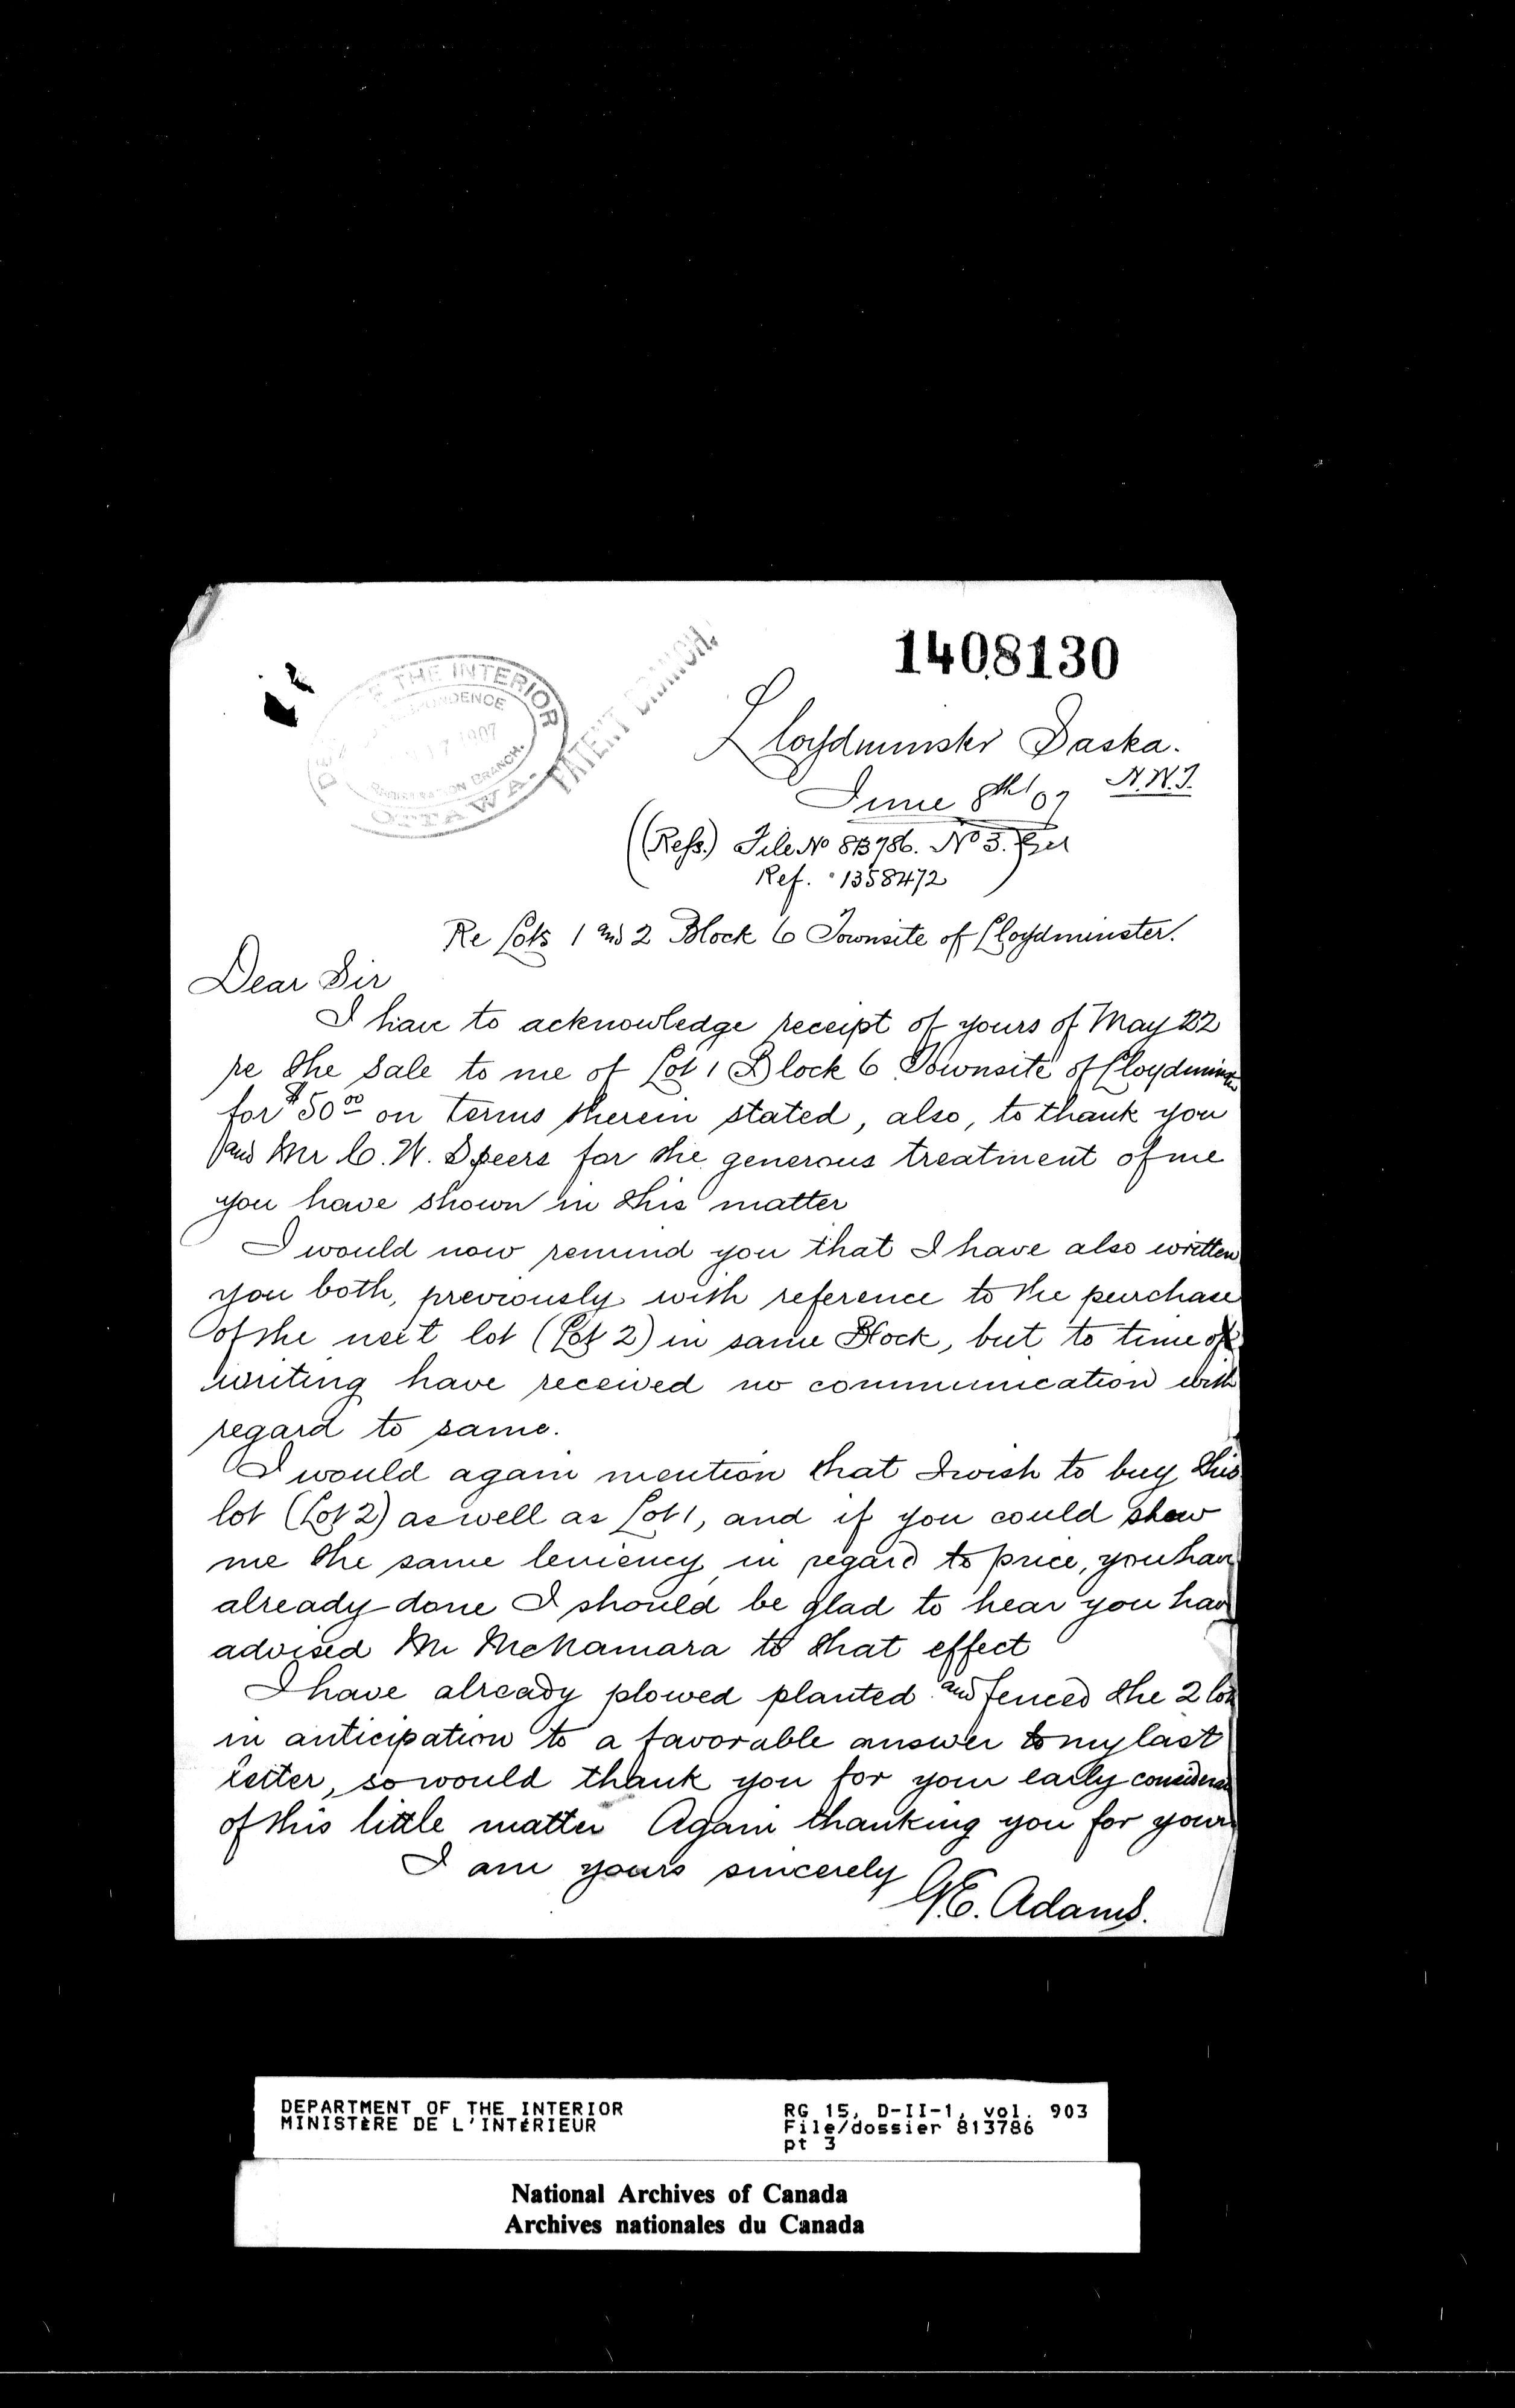 1408130
THE INTERIOR
1907
REGISTRATION BRANCH.
OTTAWA.
PATENT BRANCH.
Lloydminster Saska.
N.W.T.
June 8th/07
(Refs.) File No 813786. No 3.
Ref. " 1358472
Re Lots 1 and 2 Block 6 Townsite of Lloydminster.
Dear Sir
I have to acknowledge receipt of yours of May 22
re the sale to me of Lot 1 Block 6 Townsite of Lloydminster
for $50.00 on terms therein stated, also, to thank you
and Mr C. W. Speers for the generous treatment of me
you have shown in this matter
I would now remind you that I have also written
you both, previously with reference to the purchase
of the next lot (Lot 2) in same Block, but to time of
writing have received no communication with
regard to same.
I would again mention that I wish to buy this
lot (Lot 2) as well as Lot 1, and if you could show
me the same leniency in regard to price, you have
already done I should be glad to hear you have
advised Mr McNamara to that effect
I have already plowed planted and fenced the 2 lots
in anticipation to a favorable answer to my last
letter, so would thank you for your early considera
of this little matter Again thanking you for your
I am yours sincerely
G.E. Adams.
DEPARTMENT OF THE INTERIOR
MINISTÈRE DE L'INTÉRIEUR
RG 15, D-II-1, vol. 903
File/dossier 813786
pt 3
National Archives of Canada
Archives nationales du Canada